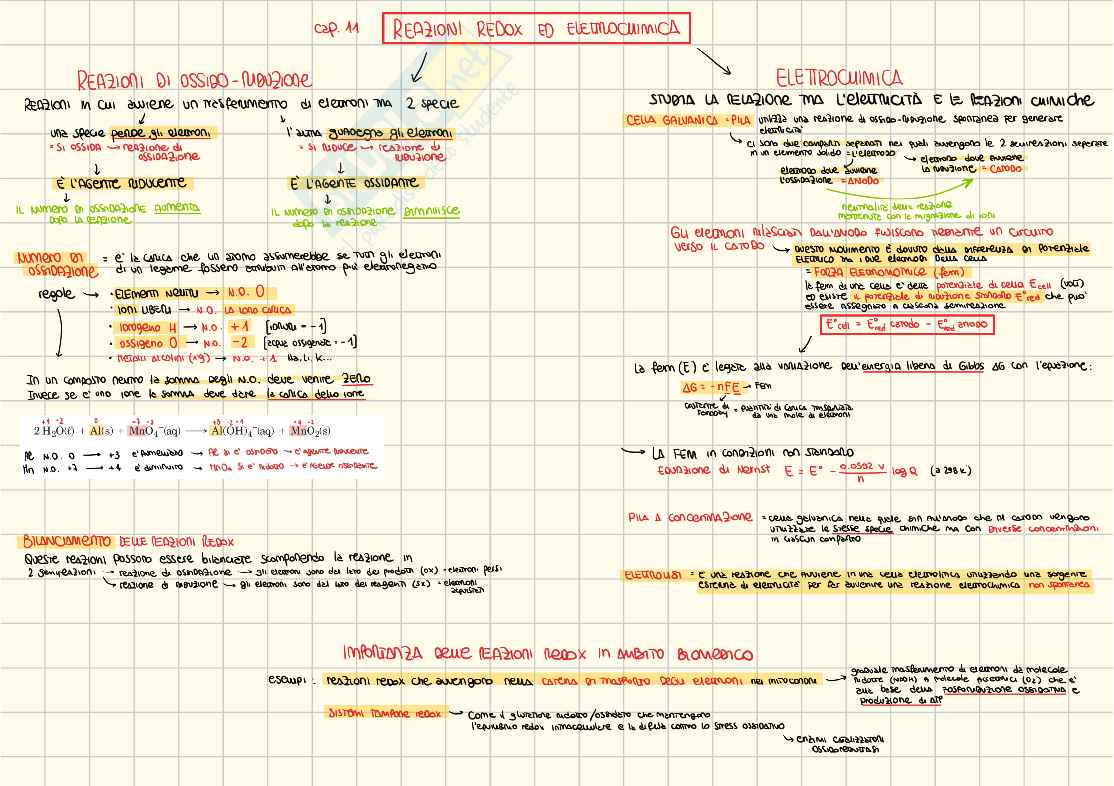 cap. 11 REAZIONI REDOX ED ELETTROCHIMICA
REAZIONI DI OSSIDO-RIDUZIONE
REAZIONI IN CUI AVVIENE UN TRASFERIMENTO DI ELETTRONI TRA 2 SPECIE
UNA SPECIE PERDE GLI ELETTRONI
= SI OSSIDA → REAZIONE DI OSSIDAZIONE
È L'AGENTE RIDUCENTE
IL NUMERO DI OSSIDAZIONE AUMENTA
DOPO LA REAZIONE
L'ALTRA GUADAGNA GLI ELETTRONI
= SI RIDUCE → REAZIONE DI RIDUZIONE
È L'AGENTE OSSIDANTE
IL NUMERO DI OSSIDAZIONE DIMINUISCE
DOPO LA REAZIONE
NUMERO DI OSSIDAZIONE = E' LA CARICA CHE UN ATOMO ASSUMEREBBE SE TUTTI GLI ELETTRONI
DI UN LEGAME FOSSERO ATTRIBUITI ALL'ATOMO PIU' ELETTRONEGATIVO
REGOLE → · ELEMENTI NEUTRI → N.O. 0
· IONI LIBERI → N.O. LA LORO CARICA
· IDROGENO H → N.O. +1 [IDRURI = -1]
· OSSIGENO O → N.O. -2 [ACQUA OSSIGENATA = -1]
· METALLI ALCALINI (1°g) → N.O. +1 Na, Li, K...
IN UN COMPOSTO NEUTRO LA SOMMA DEGLI N.O. DEVE VENIRE ZERO
INVECE SE E' UNO IONE LA SOMMA DEVE DARE LA CARICA DELLO IONE
+1 -2 0 +7 -2 +3 -2 +1 +4 -2
2 H₂O(ℓ) + Al(s) + MnO₄⁻(aq) → Al(OH)₄⁻(aq) + MnO₂(s)
Al N.O. 0 → +3 E' AUMENTATO → Al SI E' OSSIDATO → E' AGENTE RIDUCENTE
Mn N.O. +7 → +4 E' DIMINUITO → MnO₄ SI E' RIDOTTO → E' AGENTE OSSIDANTE
BILANCIAMENTO DELLE REAZIONI REDOX
QUESTE REAZIONI POSSONO ESSERE BILANCIATE SCOMPONENDO LA REAZIONE IN
2 SEMIREAZIONI → REAZIONE DI OSSIDAZIONE → GLI ELETTRONI SONO DAL LATO DEI PRODOTTI (DX) - ELETTRONI PERSI
→ REAZIONE DI RIDUZIONE → GLI ELETTRONI SONO DAL LATO DEI REAGENTI (SX) - ELETTRONI ACQUISTATI
ELETTROCHIMICA
STUDIA LA RELAZIONE TRA L'ELETTRICITÀ E LE REAZIONI CHIMICHE
CELLA GALVANICA = PILA UTILIZZA UNA REAZIONE DI OSSIDO-RIDUZIONE SPONTANEA PER GENERARE
ELETTRICITA'
→ CI SONO DUE COMPARTI SEPARATI NEI QUALI AVVENGONO LE 2 SEMIREAZIONI SEPARATE
IN UN ELEMENTO SOLIDO = L'ELETTRODO
ELETTRODO DOVE AVVIENE
L'OSSIDAZIONE = ANODO
ELETTRODO DOVE AVVIENE
LA RIDUZIONE = CATODO
NEUTRALITÀ DELLA REAZIONE
MANTENUTA CON LA MIGRAZIONE DI IONI
GLI ELETTRONI RILASCIATI DALL'ANODO FLUISCONO MEDIANTE UN CIRCUITO
VERSO IL CATODO → QUESTO MOVIMENTO È DOVUTO DALLA DIFFERENZA DI POTENZIALE
ELETTRICO TRA I DUE ELETTRODI DELLA CELLA
= FORZA ELETTROMOTRICE (fem)
LA fem DI UNA CELLA E' DETTA POTENZIALE DI CELLA E cell (VOLT)
ED ESISTE IL POTENZIALE DI RIDUZIONE STANDARD E°red CHE PUO'
ESSERE ASSEGNATO A CIASCUNA SEMIREAZIONE
E°cell = E°red CATODO - E°red ANODO
LA fem (E) E' LEGATA ALLA VARIAZIONE DELL'ENERGIA LIBERA DI GIBBS ΔG CON L'EQUAZIONE:
ΔG = -nFE → FEM
COSTANTE DI FARADAY = QUANTITA' DI CARICA TRASPORTATA
DA UNA MOLE DI ELETTRONI
→ LA FEM IN CONDIZIONI NON STANDARD
EQUAZIONE DI NERNST E = E° - 0.0592 V / n log Q (A 298 K)
PILA A CONCENTRAZIONE = CELLA GALVANICA NELLA QUALE SIA ALL'ANODO CHE AL CATODO VENGONO
UTILIZZATE LE STESSE SPECIE CHIMICHE MA CON DIVERSE CONCENTRAZIONI
IN CIASCUN COMPARTO
ELETTROLISI = È UNA REAZIONE CHE AVVIENE IN UNA CELLA ELETTROLITICA UTILIZZANDO UNA SORGENTE
ESTERNA DI ELETTRICITÀ PER FAR AVVENIRE UNA REAZIONE ELETTROCHIMICA NON SPONTANEA
IMPORTANZA DELLE REAZIONI REDOX IN AMBITO BIOMEDICO
ESEMPI: REAZIONI REDOX CHE AVVENGONO NELLA CATENA DI TRASPORTO DEGLI ELETTRONI NEI MITOCONDRI
→ GRADUALE TRASFERIMENTO DI ELETTRONI DA MOLECOLE
RIDOTTE (NADH) A MOLECOLE ACCETTRICI (O₂) CHE E'
ALLA BASE DELLA FOSFORILAZIONE OSSIDATIVA E
PRODUZIONE DI ATP
SISTEMI TAMPONE REDOX → COME IL GLUTATIONE RIDOTTO/OSSIDATO CHE MANTENGONO
L'EQUILIBRIO REDOX INTRACELLULARE E LA DIFESA CONTRO LO STRESS OSSIDATIVO
→ ENZIMI CATALIZZATORI
OSSIDOREDUTTASI